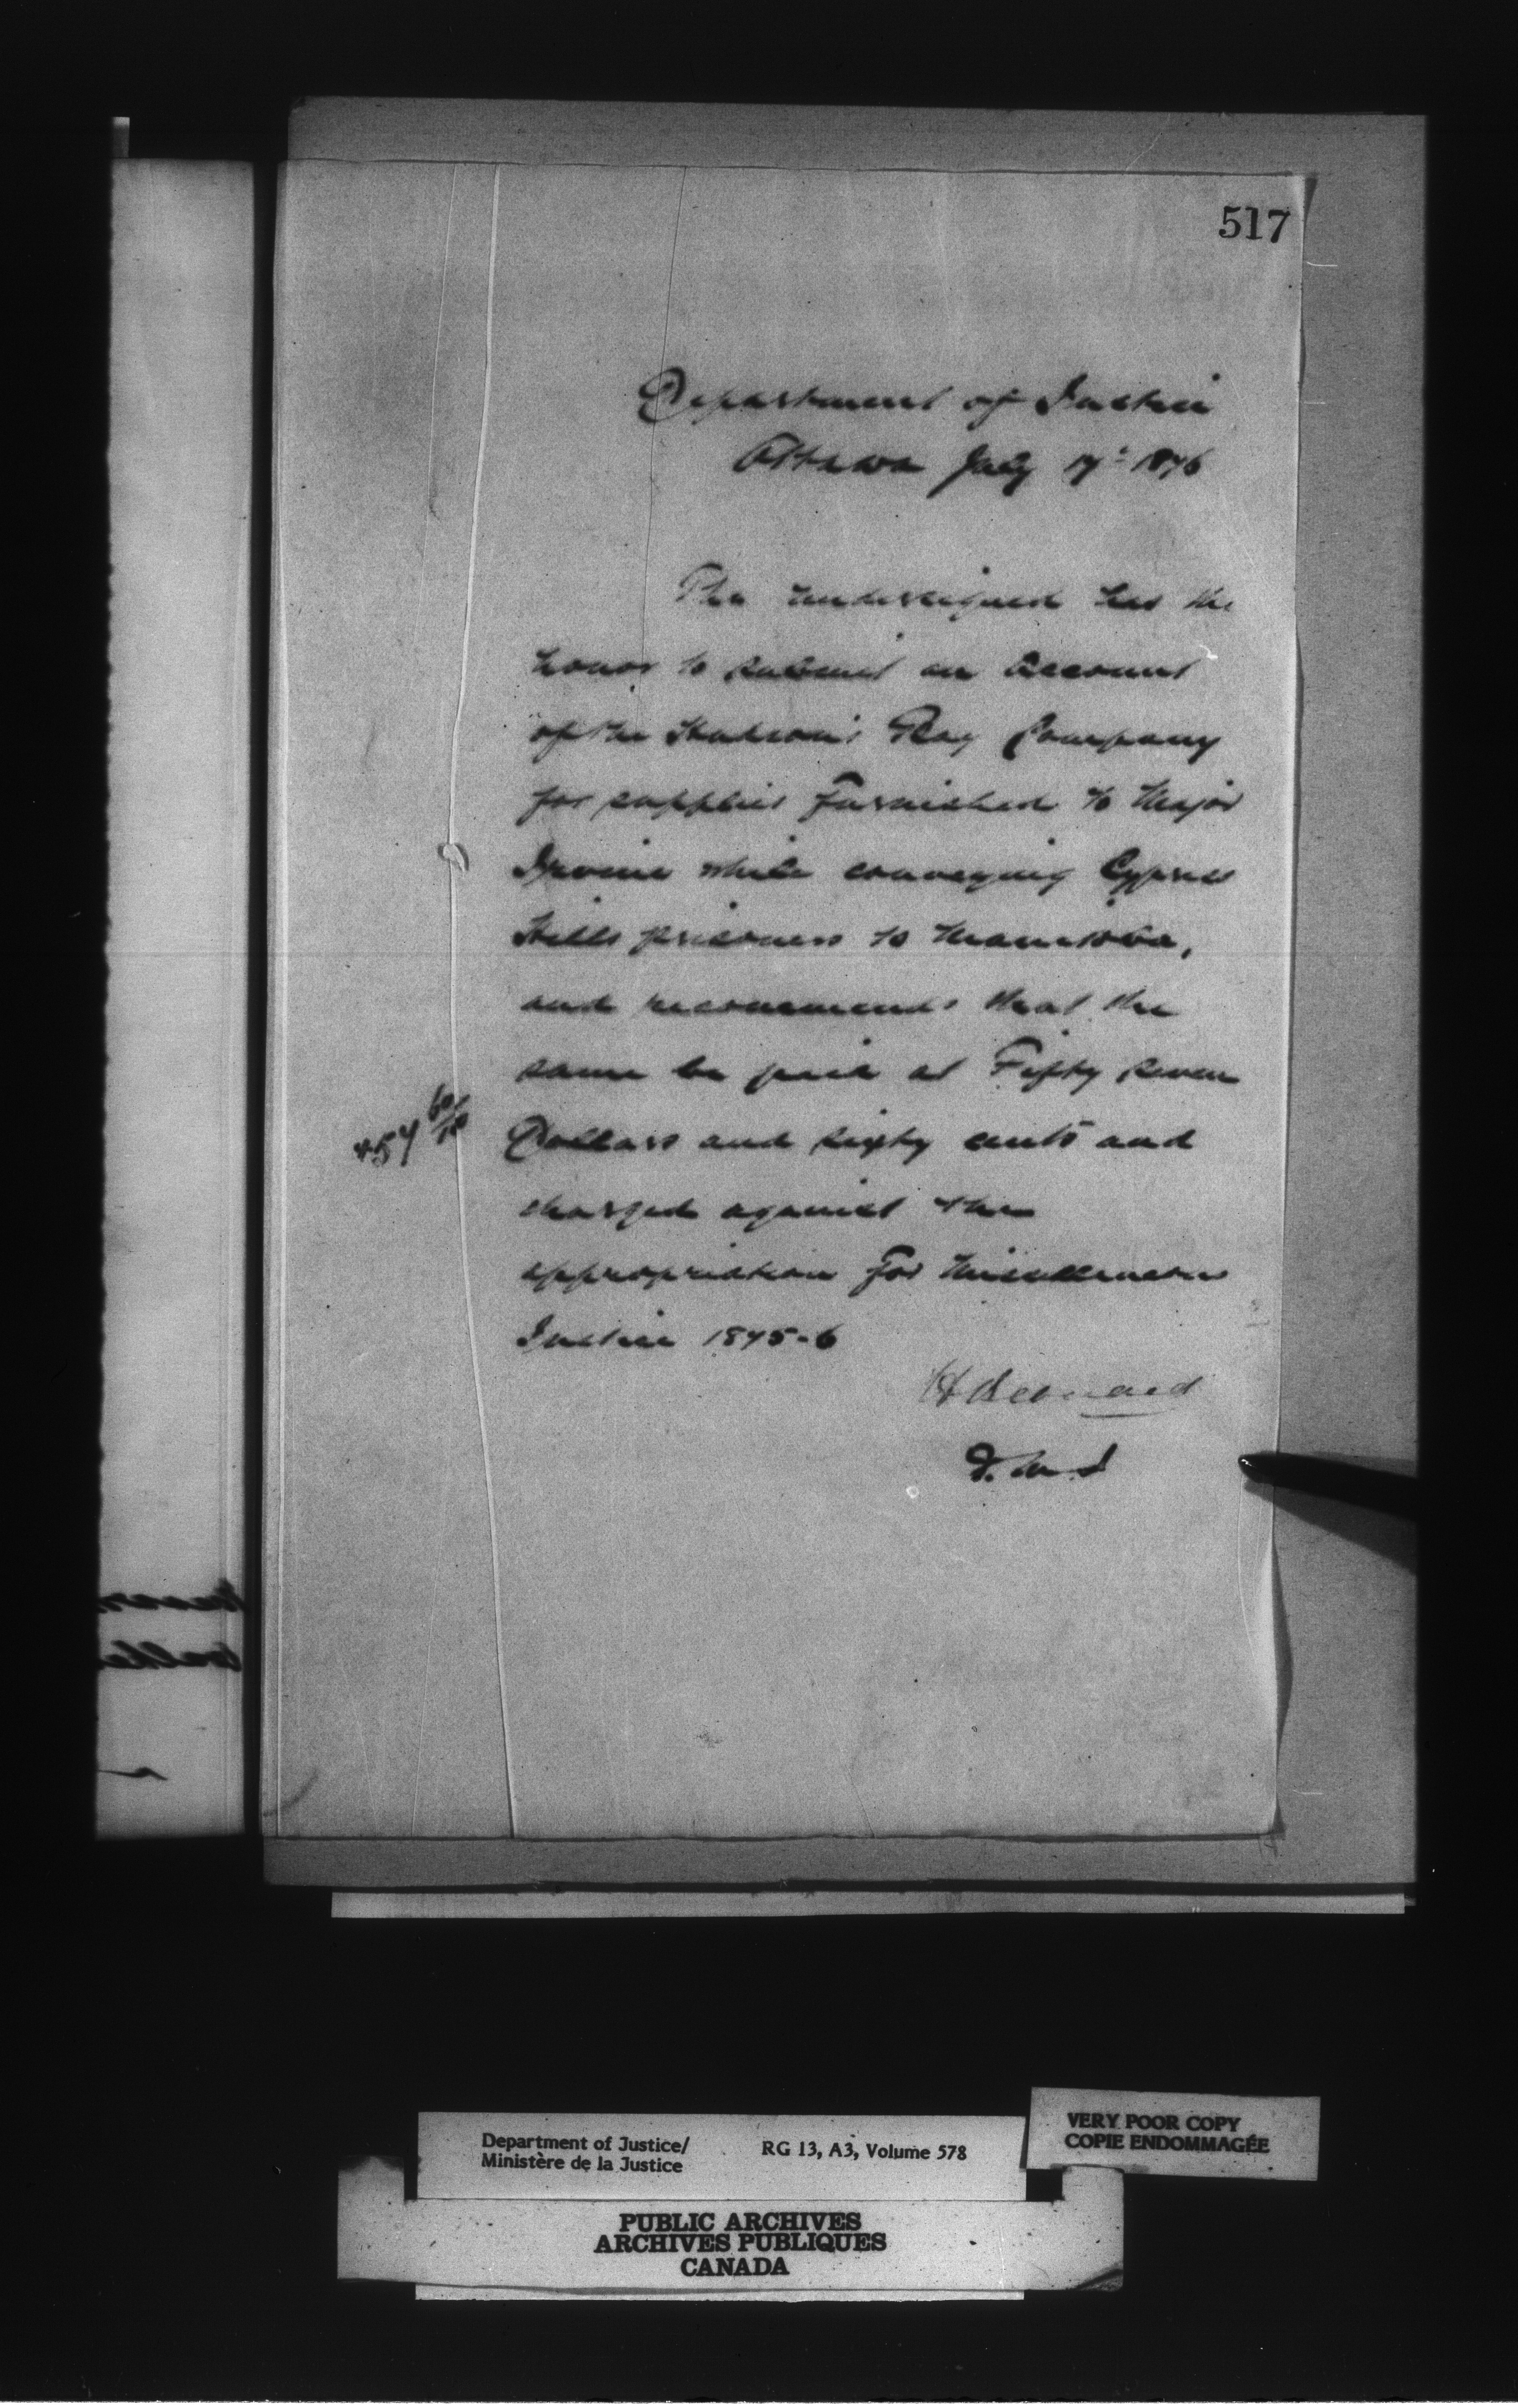 517
Department of Justice
Ottawa July 17th 1876
The undersigned has the
honor to submit an Account
of the Hudson's Bay Company
for supplies furnished to Major
Irvine while conveying Cypress
Hills prisoners to Manitoba,
and recommends that the
same be paid at Fifty Seven
$57 60/100
Dollars and sixty cents and
charged against the
appropriation for Miscellaneous
Justice 1875-6
H Bernard
D. M. J
Department of Justice/
Ministère de la Justice
RG 13, A3, Volume 578
VERY POOR COPY
COPIE ENDOMMAGÉE
PUBLIC ARCHIVES
ARCHIVES PUBLIQUES
CANADA